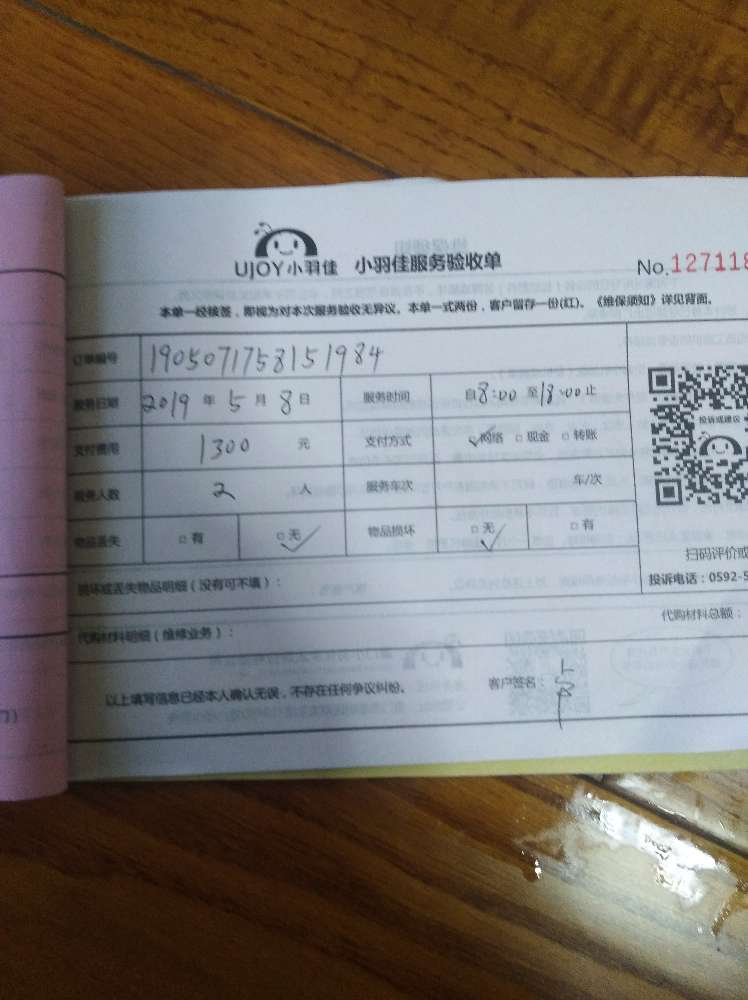 UJOY小羽佳 小羽佳服务验收单 No.127118
本单一经核签，即视为对本次服务验收无异议。本单一式两份，客户留存一份(红)。《维保须知》详见背面。
订单编号 190507175815 1984
服务日期 2019 年 5 月 8 日 服务时间 自8:00 至18:00止
支付费用 1300 元 支付方式 ☑网络 □现金 □转账
投诉或建议
服务人数 2 人 服务车次 车/次
物品丢失 □有 □无✓ 物品损坏 □无✓ □有
扫码评价或
损坏或丢失物品明细（没有可不填）：
投诉电话：0592-5
代购材料明细（维修业务）： 代购材料总额：
以上填写信息已经本人确认无误，不存在任何争议纠纷。 客户签名：